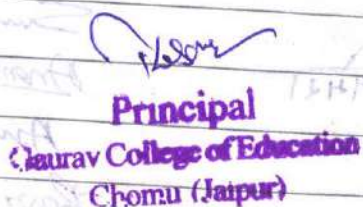 Principal
Gaurav College of Education
Chomu (Jaipur)